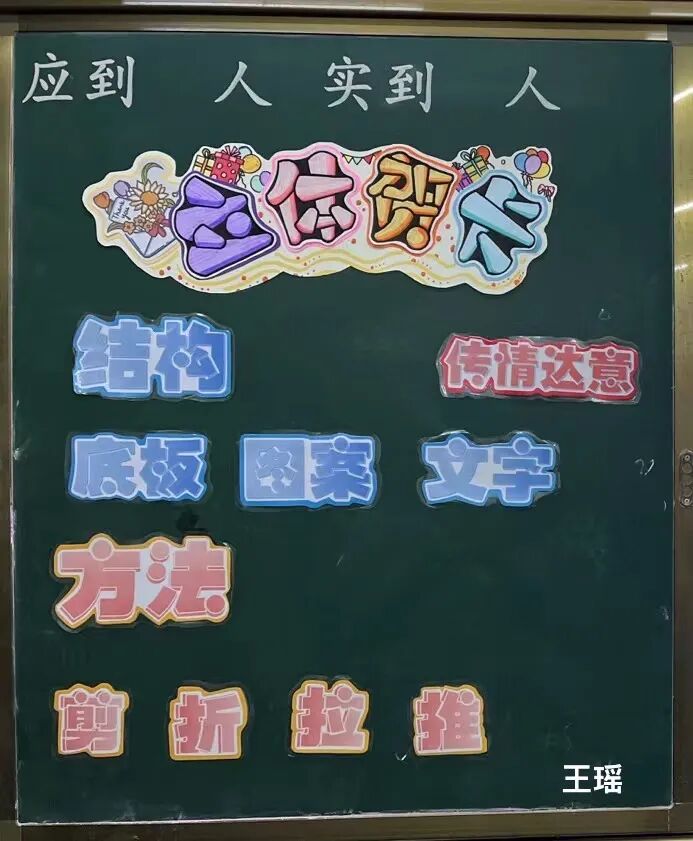 应到 人 实到 人
Thank you
立体贺卡
结构 传情达意
底板 图案 文字
方法
剪 折 拉 推
王瑶